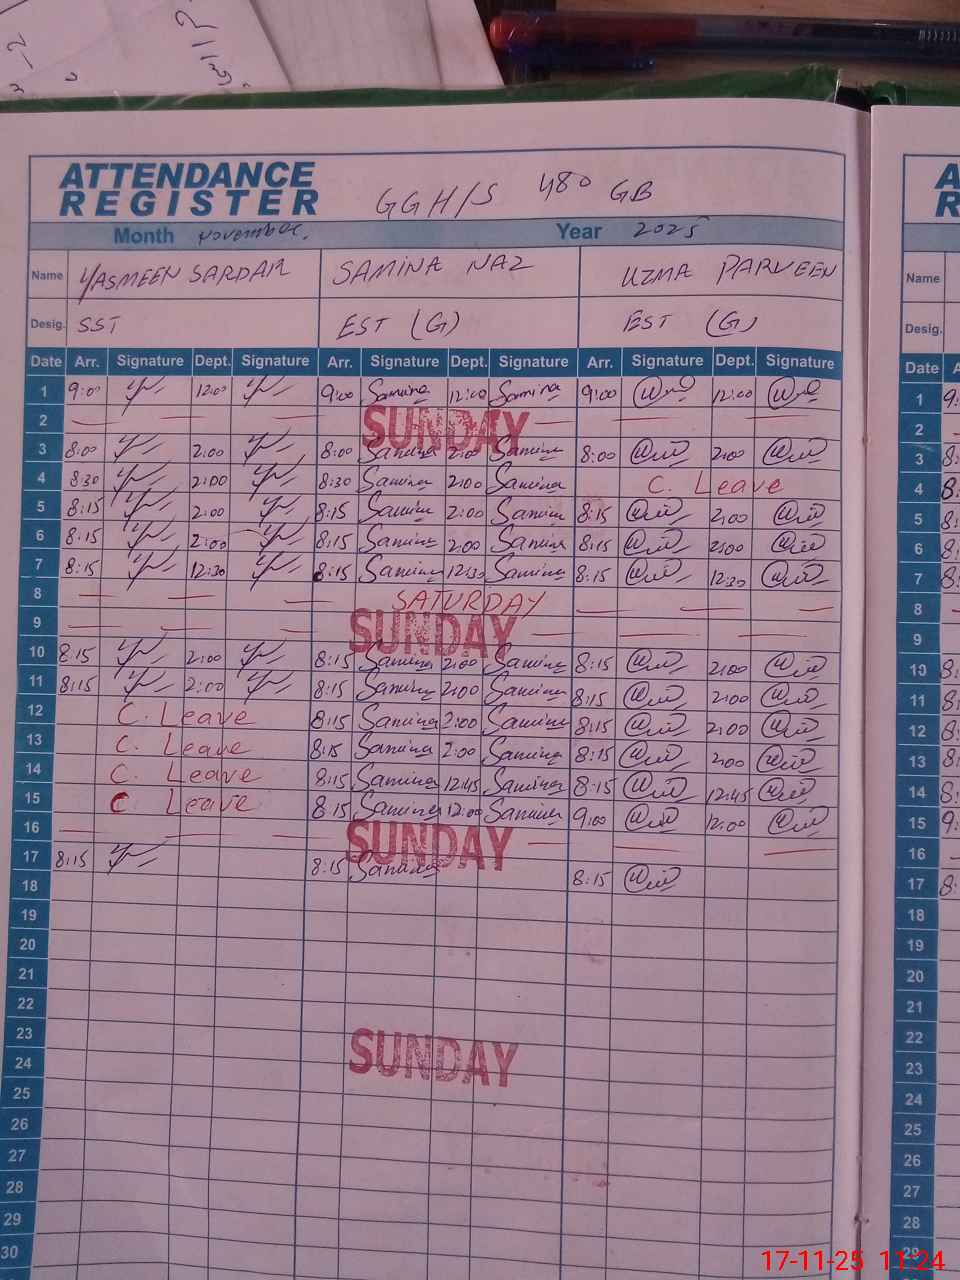 ATTENDANCE
REGISTER
GGH/S 480 GB
Month November. Year 2025
Name YASMEEN SARDAR SAMINA NAZ UZMA PARVEEN
Desig. SST EST (G) EST (G)
Date Arr. Signature Dept. Signature Arr. Signature Dept. Signature Arr. Signature Dept. Signature
1 9:00 12:00 9:00 Samina 12:00 Samina 9:00 12:00
2 SUNDAY
3 8:00 2:00 8:00 Samina 2:00 Samina 8:00 2:00
4 8:30 2:00 8:30 Samina 2:00 Samina C. Leave
5 8:15 2:00 8:15 Samina 2:00 Samina 8:15 2:00
6 8:15 2:00 8:15 Samina 2:00 Samina 8:15 2:00
7 8:15 12:30 8:15 Samina 12:30 Samina 8:15 12:30
8 SATURDAY
9 SUNDAY
10 8:15 2:00 8:15 Samina 2:00 Samina 8:15 2:00
11 8:15 2:00 8:15 Samina 2:00 Samina 8:15 2:00
12 C. Leave 8:15 Samina 2:00 Samina 8:15 2:00
13 C. Leave 8:15 Samina 2:00 Samina 8:15 2:00
14 C. Leave 8:15 Samina 12:45 Samina 8:15 12:45
15 C. Leave 8:15 Samina 12:00 Samina 9:00 12:00
16 SUNDAY
17 8:15 8:15 Samina 8:15
18
19
20
21
22
23 SUNDAY
24
25
26
27
28
29
30
A
R
Name
Desig.
Date A
1 9:
2
3 8:
4 8:
5 8:
6 8:
7 8:
8
9
10 8:
11 8:
12 8:
13 8:
14 8:
15 9:
16
17 8:
18
19
20
21
22
23
24
25
26
27
28
29
17-11-25 11:24